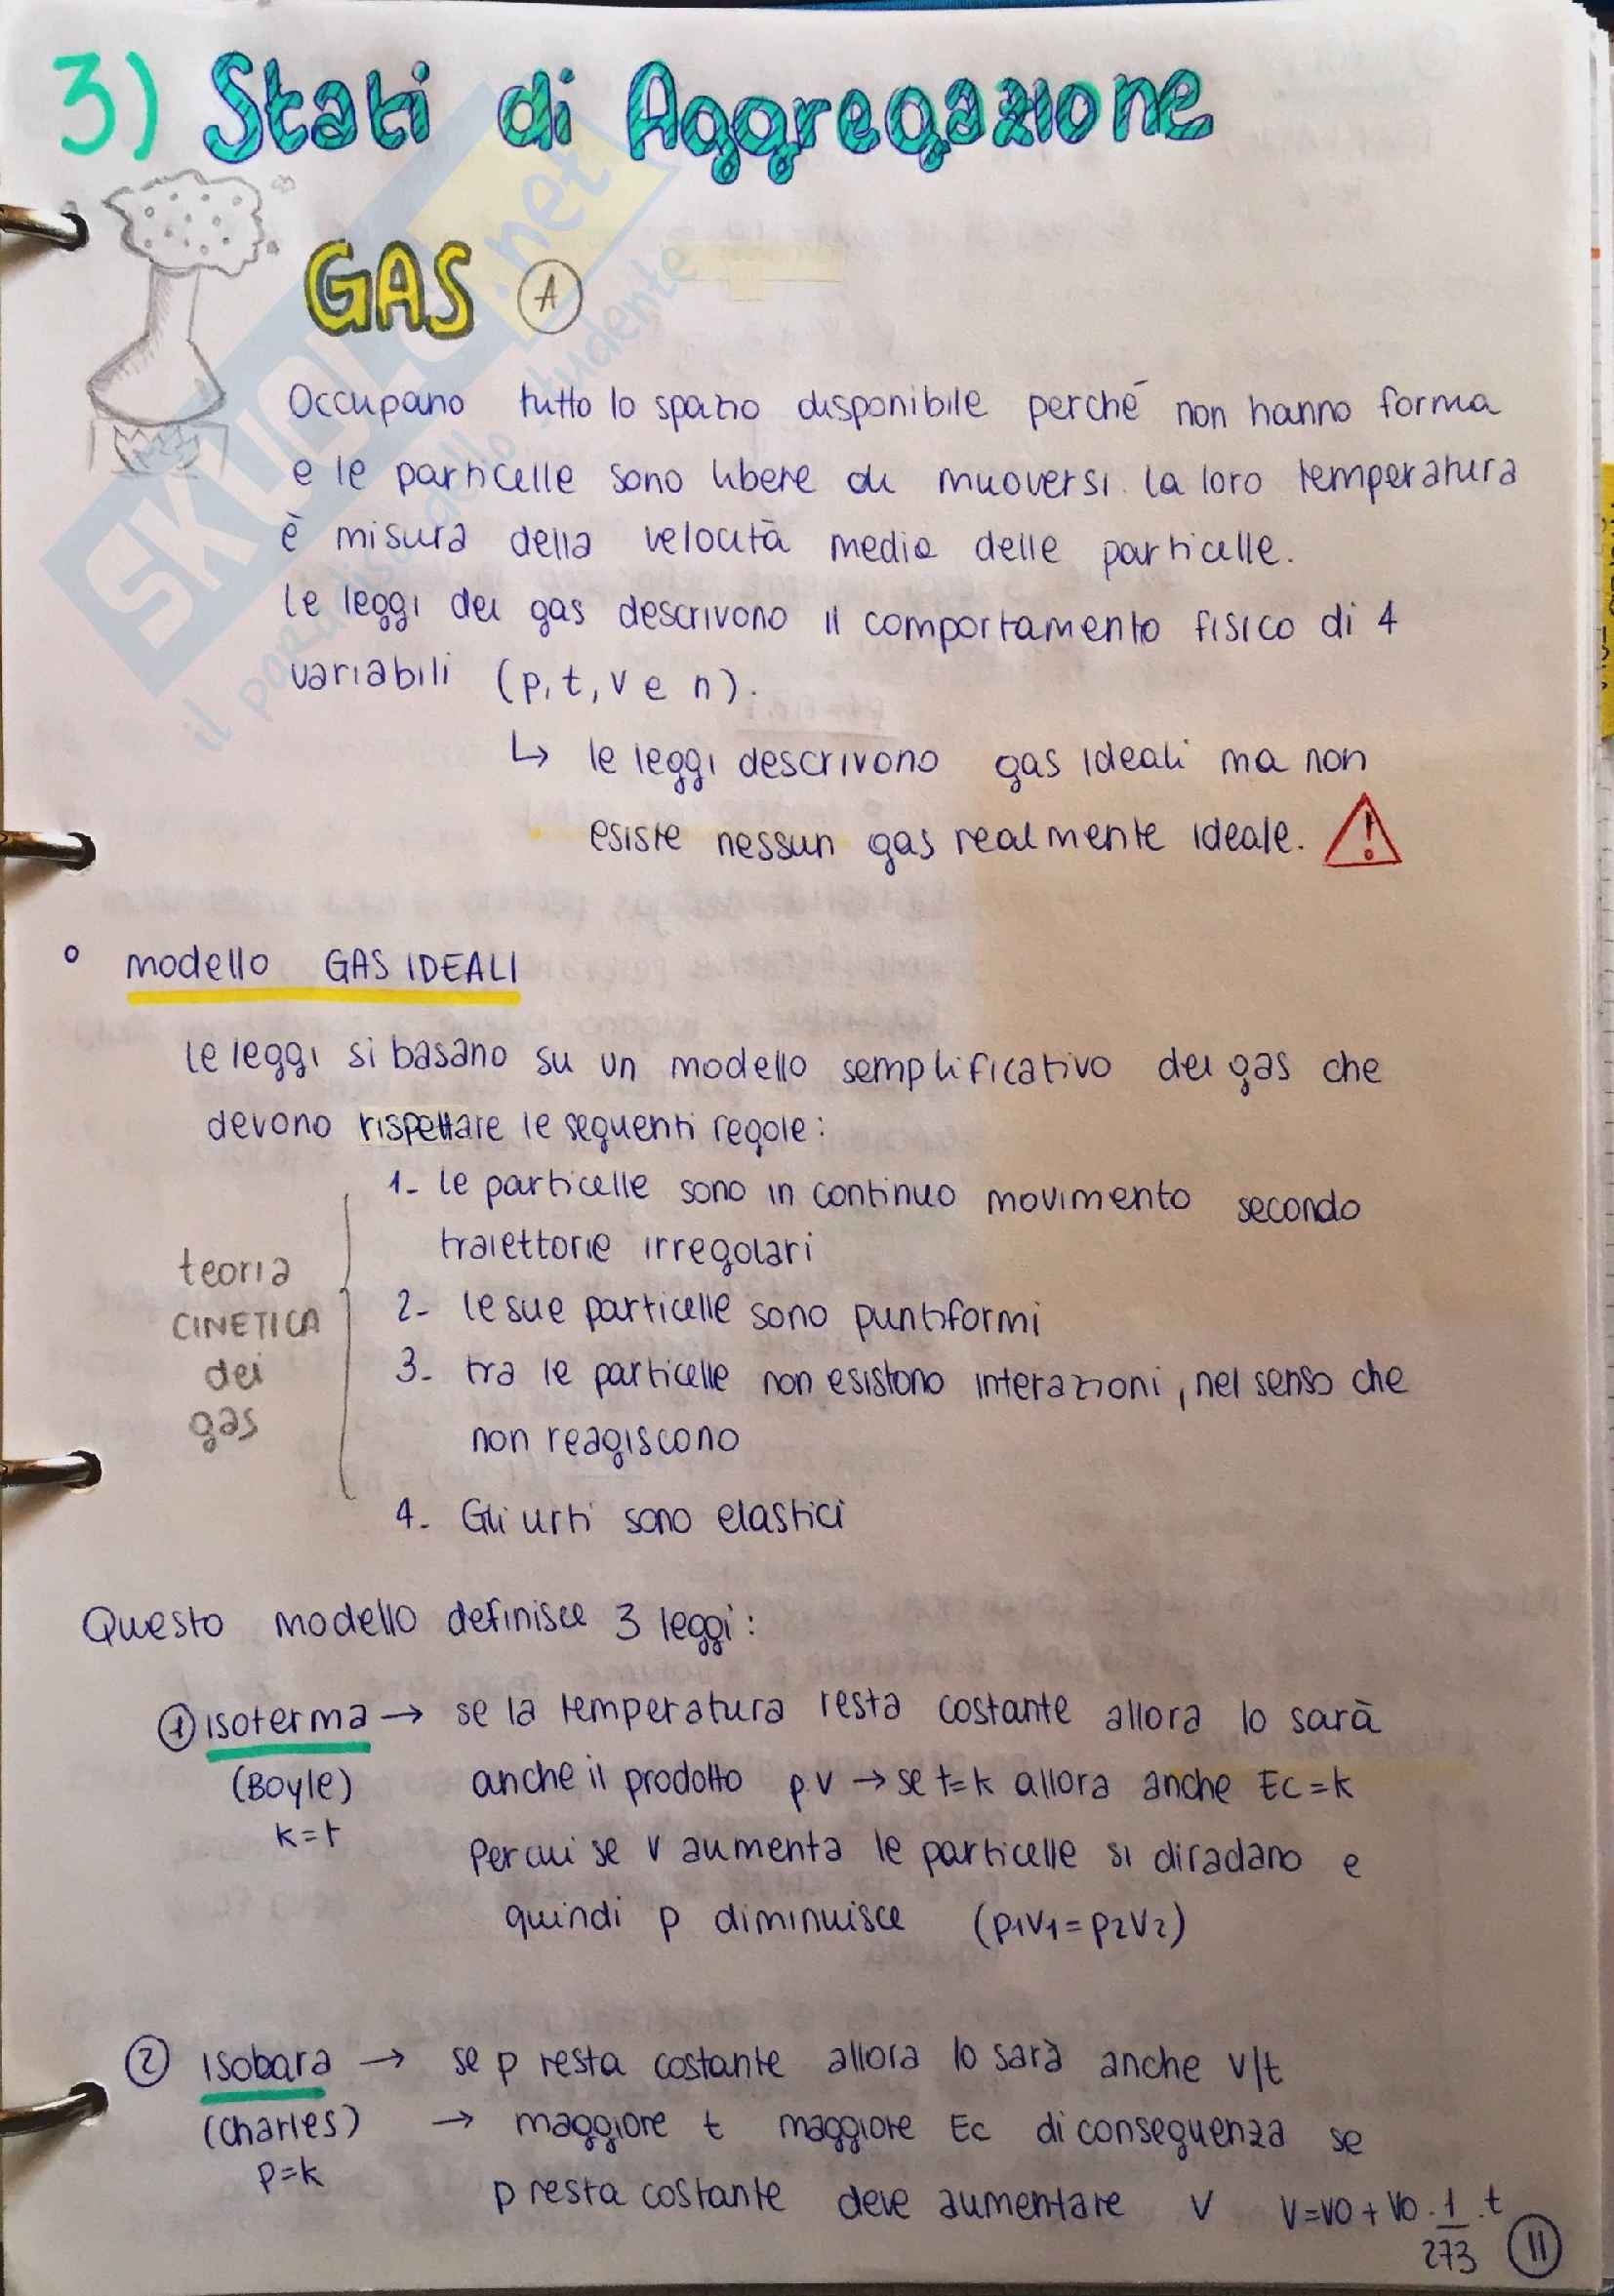 3) Stati di Aggregazione
GAS A
Occupano tutto lo spazio disponibile perché non hanno forma
e le particelle sono libere di muoversi. la loro temperatura
è misura della velocità media delle particelle.
Le leggi dei gas descrivono il comportamento fisico di 4
variabili (p, t, v e n).
↳ le leggi descrivono gas ideali ma non
esiste nessun gas realmente ideale. ⚠
° modello GAS IDEALI
Le leggi si basano su un modello semplificativo dei gas che
devono rispettare le seguenti regole:
1- Le particelle sono in continuo movimento secondo
traiettorie irregolari
2- le sue particelle sono puntiformi
3- tra le particelle non esistono interazioni, nel senso che
non reagiscono
4- Gli urti sono elastici
teoria
CINETICA
dei
gas
Questo modello definisce 3 leggi:
① isoterma → se la temperatura resta costante allora lo sarà
(Boyle) anche il prodotto p.v → se t=k allora anche Ec=k
k=t
Per cui se v aumenta le particelle si diradano e
quindi p diminuisce (p1v1=p2v2)
② isobara → se p resta costante allora lo sarà anche v/t
(Charles) → maggiore t maggiore Ec di conseguenza se
p=k
p resta costante deve aumentare v v=v0+v0.1/273.t
11
SKUOLA.net
il paradiso dello studente